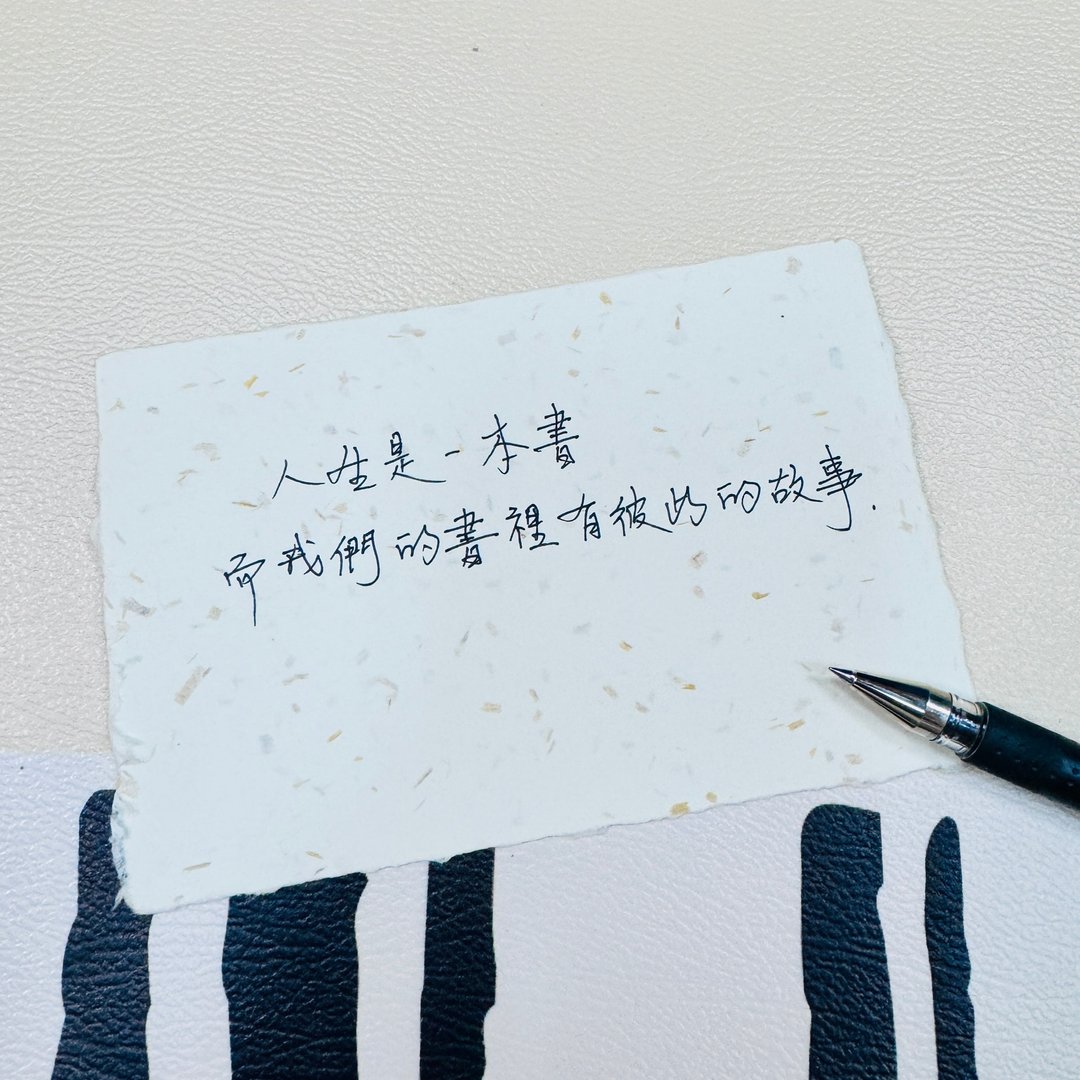 人生是一本書
而我們的書裡有彼此的故事.